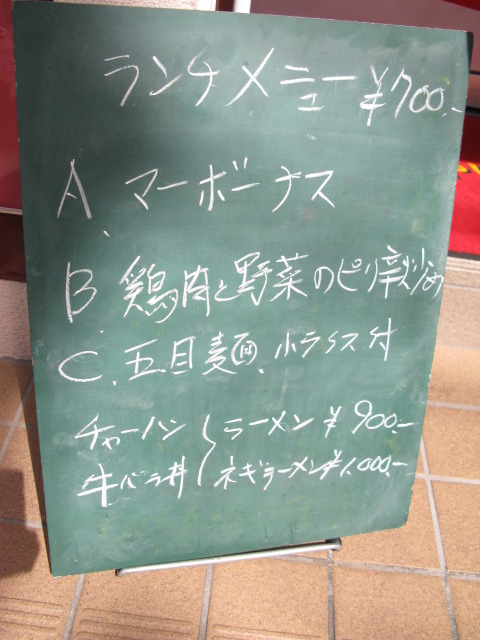 ランチメニュー ¥700.-
A、マーボーナス
B、鶏肉と野菜のピリ辛炒め
C、五目麺、小ライス付
チャーハン ラーメン ¥900.-
牛バラ丼 ネギラーメン ¥1,000.-